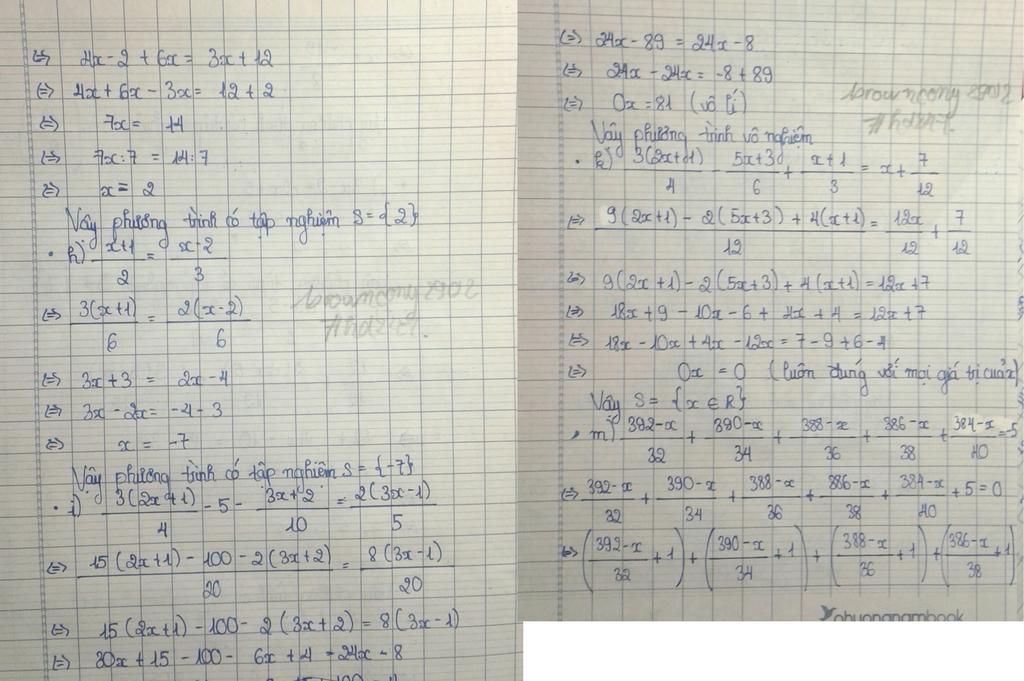 ⇔ 4x - 2 + 6x = 3x + 12
⇔ 4x + 6x - 3x = 12 + 2
⇔ 7x = 14
⇔ 7x : 7 = 14 : 7
⇔ x = 2
Vậy phương trình có tập nghiệm S = {2}
• h) (x+1)/2 = (x-2)/3
⇔ 3(x+1)/6 = 2(x-2)/6
⇔ 3x + 3 = 2x - 4
⇔ 3x - 2x = -4 - 3
⇔ x = -7
Vậy phương trình có tập nghiệm S = {-7}
• i) 3(2x+1)/4 - 5 - (3x+2)/10 = 2(3x-1)/5
⇔ (15(2x+1) - 100 - 2(3x+2))/20 = 8(3x-1)/20
⇔ 15(2x+1) - 100 - 2(3x+2) = 8(3x-1)
⇔ 30x + 15 - 100 - 6x + 4 = 24x - 8
⇔ 24x - 89 = 24x - 8
⇔ 24x - 24x = -8 + 89
⇔ 0x = 81 (vô lí)
Vậy phương trình vô nghiệm
• k) 3(2x+1)/4 - (5x+3)/6 + (x+1)/3 = x + 7/12
⇔ (9(2x+1) - 2(5x+3) + 4(x+1))/12 = 12x/12 + 7/12
⇔ 9(2x+1) - 2(5x+3) + 4(x+1) = 12x + 7
⇔ 18x + 9 - 10x - 6 + 4x + 4 = 12x + 7
⇔ 18x - 10x + 4x - 12x = 7 - 9 + 6 - 4
⇔ 0x = 0 (luôn đúng với mọi giá trị của x)
Vậy S = {x ∈ R}
• m) (392-x)/32 + (390-x)/34 + (388-x)/36 + (386-x)/38 + (384-x)/40 = -5
⇔ (392-x)/32 + (390-x)/34 + (388-x)/36 + (386-x)/38 + (384-x)/40 + 5 = 0
⇔ ((392-x)/32 + 1) + ((390-x)/34 + 1) + ((388-x)/36 + 1) + ((386-x)/38 + 1)
phuongnambook